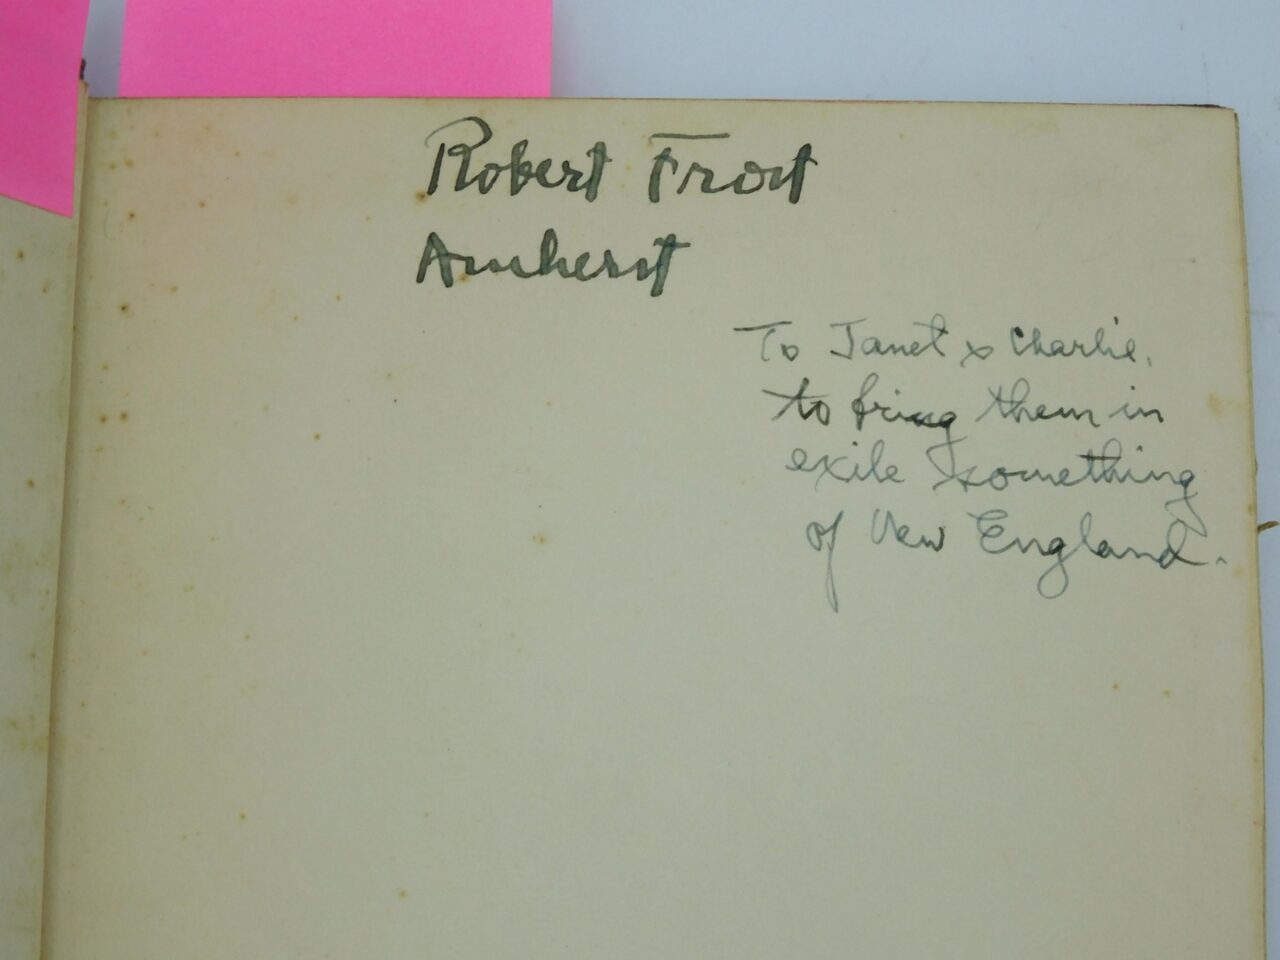 Robert Frost
Amherst
To Janet & Charlie,
to bring them in
exile something
of New England.